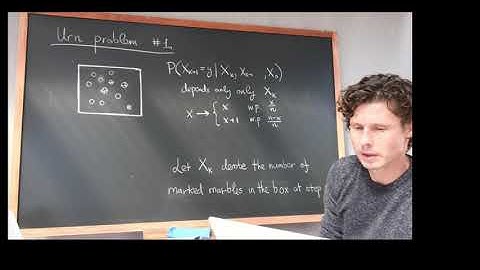 Urn problem #1.
P(X_{k+1} = y | X_k, X_{k-1}, , X_0)
depends only only X_k
x → { x w.p. x/n
x+1 w.p. n-x/n
Let X_k denote the number of
marked marbles in the box at step